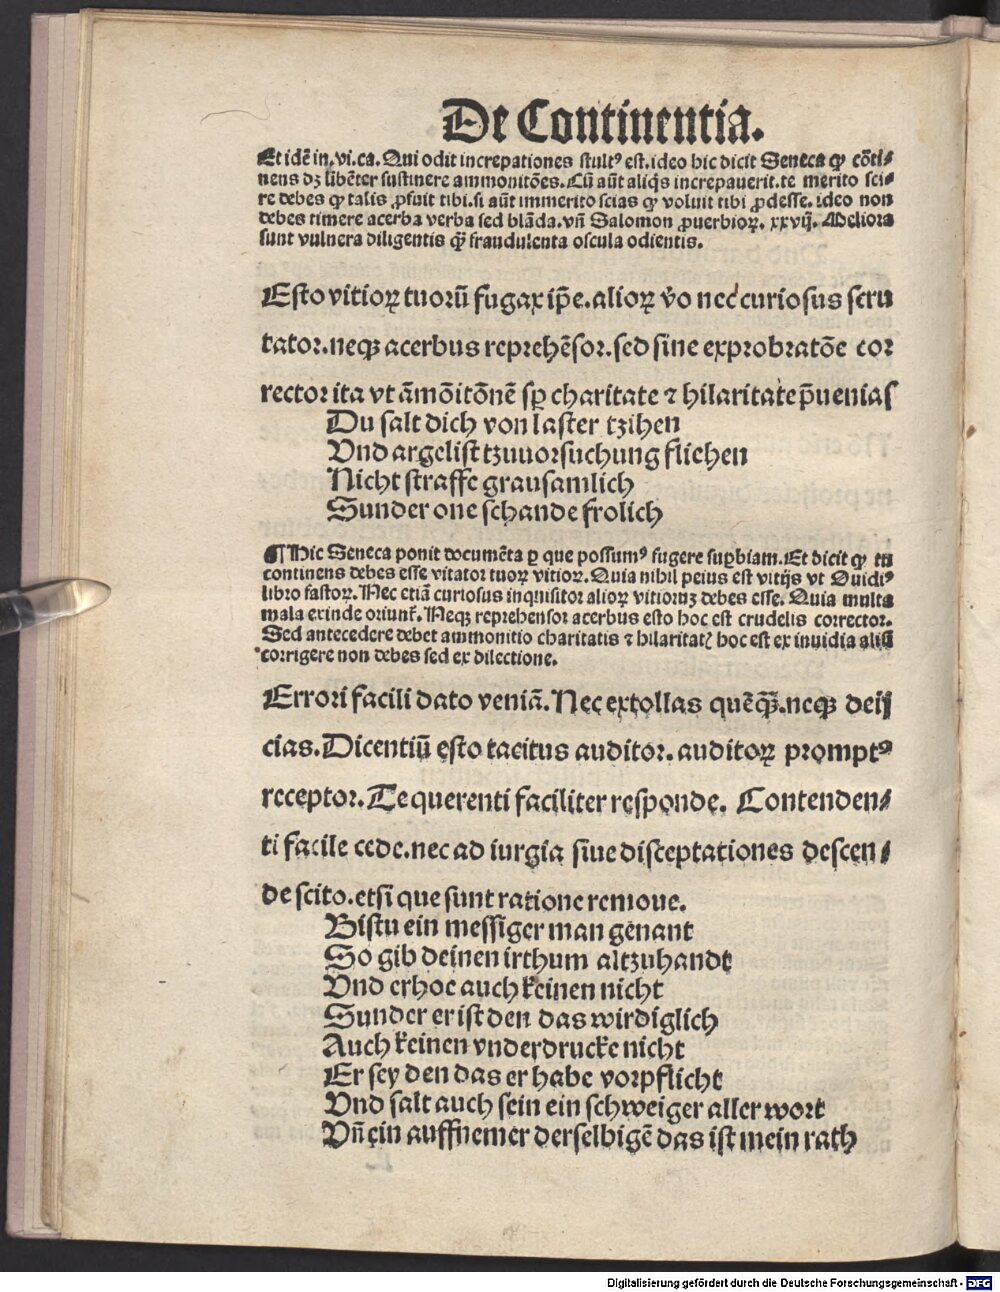 De Continentia.
Et idē in.vi.ca.Qui odit increpationes stultꝰ est.ideo hic dicit Seneca ꝙ cōti⸗
nens dꝫ libēter sustinere ammonitōes.Cū aūt aliq̇s increpauerit.te merito sci⸗
re debes ꝙ talis ꝓfuit tibi.si aūt immerito scias ꝙ voluit tibi ꝓdesse.ideo non
debes timere acerba verba sed blāda.vn̄ Salomon ꝓuerbioꝝ.xxvij.Meliora
sunt vulnera diligentis q̄ꝫ fraudulenta oscula odientis.
Esto vitioꝝ tuorū fugax ip̄e.alioꝝ v̊o nec curiosus scru
tator.neqꝫ acerbus reprehēsor.sed sine exprobratōe cor
rector ita vt āmōitōnē sꝑ charitate ⁊ hilaritate p̄uenias
Du salt dich von laster tzihen
Vnd argelist tzuuorsuchung fliehen
Nicht straffe grausamlich
Sunder one schande frolich
¶Hic Seneca ponit documēta ꝑ que possumꝰ fugere suꝑbiam.Et dicit ꝙ tu
continens debes esse vitator tuoꝝ vitioꝝ.Quia nihil peius est vitijs vt Ouidiꝰ
libro fastoꝝ.Nec etiā curiosus inquisitor alioꝝ vitiorum debes esse.Quia multa
mala exinde oriunt᷑.Neqꝫ reprehensor acerbus esto hoc est crudelis corrector.
Sed antecedere debet ammonitio charitatis ⁊ hilaritatꝭ hoc est ex inuidia aliū
corrigere non debes sed ex dilectione.
Errori facili dato veniā.Nec extollas quēq̄ꝫ.neqꝫ deij
cias.Dicentiū esto tacitus auditor.auditoꝝ promptꝰ
receptor.Te querenti faciliter responde.Contenden⸗
ti facile cede.nec ad iurgia siue disceptationes descen⸗
de scito.etsi que sunt ratione remoue.
Bistu ein messiger man genant
So gib deinen irthum altzuhandt
Vnd erhoe auch keinen nicht
Sunder er ist den das wirdiglich
Auch keinen vnderdrucke nicht
Er sey den das er habe vorpflicht
Vnd salt auch sein ein schweiger aller wort
Vn̄ ein auffnemer derselbigē das ist mein rath
Digitalisierung gefördert durch die Deutsche Forschungsgemeinschaft - DFG